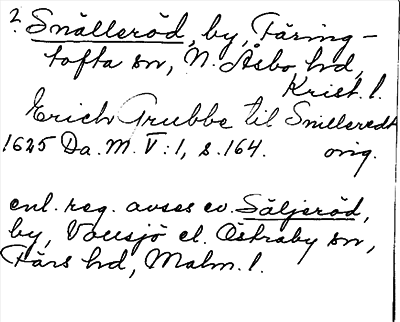 2. Snälleröd, by, Färing-
tofta sn, N. Åsbo hd,
Krist. l.
Erich Grubbe til Snilleredt
1625 Da. M. V:1, s. 164. orig.
enl. reg. avses ev. Säljeröd,
by, Vollsjö el. Östraby sn,
Färs hd, Malm. l.